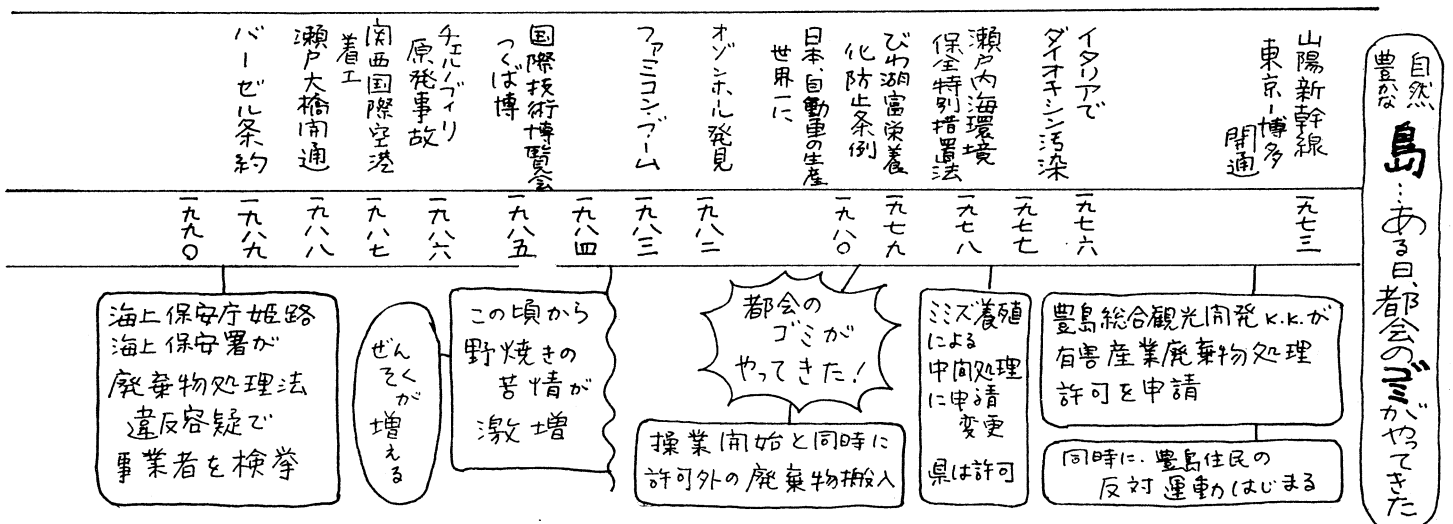 自然
豊かな
島…ある日、都会のゴミがやってきた
山陽新幹線
東京-博多
開通
イタリアで
ダイオキシン汚染
瀬戸内海環境
保全特別措置法
びわ湖富栄養
化防止条例
日本、自動車の生産
世界一に
オゾンホール発見
ファミコン・ブーム
国際技術博覧会
つくば博
チェルノブイリ
原発事故
関西国際空港
着工
瀬戸大橋開通
バーゼル条約
一九七三
一九七六
一九七七
一九七八
一九七九
一九八〇
一九八二
一九八三
一九八四
一九八五
一九八六
一九八七
一九八八
一九八九
一九九〇
豊島総合観光開発K.K.が
有害産業廃棄物処理
許可を申請
同時に、豊島住民の
反対運動はじまる
ミミズ養殖
による
中間処理
に申請
変更
県は許可
都会の
ゴミが
やってきた!
操業開始と同時に
許可外の廃棄物搬入
この頃から
野焼きの
苦情が
激増
ぜんそくが
増える
海上保安庁姫路
海上保安署が
廃棄物処理法
違反容疑で
事業者を検挙